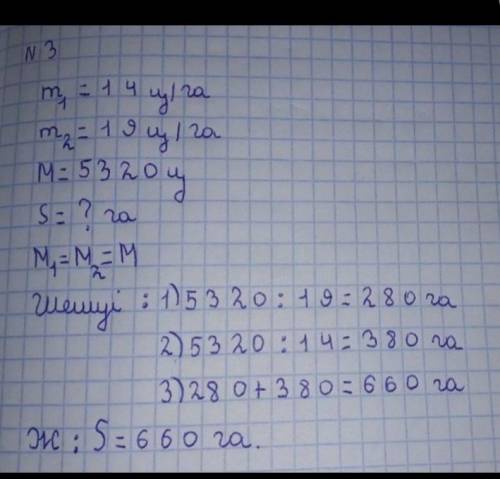 N 3
m₁ = 14 ц/га
m₂ = 19 ц/га
M = 5320 ц
S = ? га
M₁ = M₂ = M
Шешуі : 1) 5320 : 19 = 280 га
2) 5320 : 14 = 380 га
3) 280 + 380 = 660 га
Ж : S = 660 га.